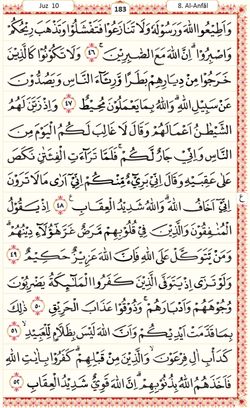 Juz 10 183 8. Al-Anfâl
وَاَطِيْعُوا اللّٰهَ وَرَسُوْلَهٗ وَلَا تَنَازَعُوْا فَتَفْشَلُوْا وَتَذْهَبَ رِيْحُكُمْ
وَاصْبِرُوْاۗ اِنَّ اللّٰهَ مَعَ الصّٰبِرِيْنَۚ ٤٦ وَلَا تَكُوْنُوْا كَالَّذِيْنَ
خَرَجُوْا مِنْ دِيَارِهِمْ بَطَرًا وَّرِئَاۤءَ النَّاسِ وَيَصُدُّوْنَ
عَنْ سَبِيْلِ اللّٰهِۗ وَاللّٰهُ بِمَا يَعْمَلُوْنَ مُحِيْطٌ ٤٧ وَاِذْ زَيَّنَ لَهُمُ
الشَّيْطٰنُ اَعْمَالَهُمْ وَقَالَ لَا غَالِبَ لَكُمُ الْيَوْمَ مِنَ
النَّاسِ وَاِنِّيْ جَارٌ لَّكُمْۚ فَلَمَّا تَرَاۤءَتِ الْفِئَتٰنِ نَكَصَ
عَلٰى عَقِبَيْهِ وَقَالَ اِنِّيْ بَرِيْۤءٌ مِّنْكُمْ اِنِّيْٓ اَرٰى مَا لَا تَرَوْنَ
اِنِّيْٓ اَخَافُ اللّٰهَۗ وَاللّٰهُ شَدِيْدُ الْعِقَابِ ٤٨ اِذْ يَقُوْلُ
الْمُنٰفِقُوْنَ وَالَّذِيْنَ فِيْ قُلُوْبِهِمْ مَّرَضٌ غَرَّ هٰٓؤُلَاۤءِ دِيْنُهُمْۗ
وَمَنْ يَّتَوَكَّلْ عَلَى اللّٰهِ فَاِنَّ اللّٰهَ عَزِيْزٌ حَكِيْمٌ ٤٩
وَلَوْ تَرٰٓى اِذْ يَتَوَفَّى الَّذِيْنَ كَفَرُوا الْمَلٰۤىِٕكَةُ يَضْرِبُوْنَ
وُجُوْهَهُمْ وَاَدْبَارَهُمْۚ وَذُوْقُوْا عَذَابَ الْحَرِيْقِ ٥٠ ذٰلِكَ
بِمَا قَدَّمَتْ اَيْدِيْكُمْ وَاَنَّ اللّٰهَ لَيْسَ بِظَلَّامٍ لِّلْعَبِيْدِۙ ٥١
كَدَأْبِ اٰلِ فِرْعَوْنَۙ وَالَّذِيْنَ مِنْ قَبْلِهِمْۗ كَفَرُوْا بِاٰيٰتِ اللّٰهِ
فَاَخَذَهُمُ اللّٰهُ بِذُنُوْبِهِمْۗ اِنَّ اللّٰهَ قَوِيٌّ شَدِيْدُ الْعِقَابِ ٥٢